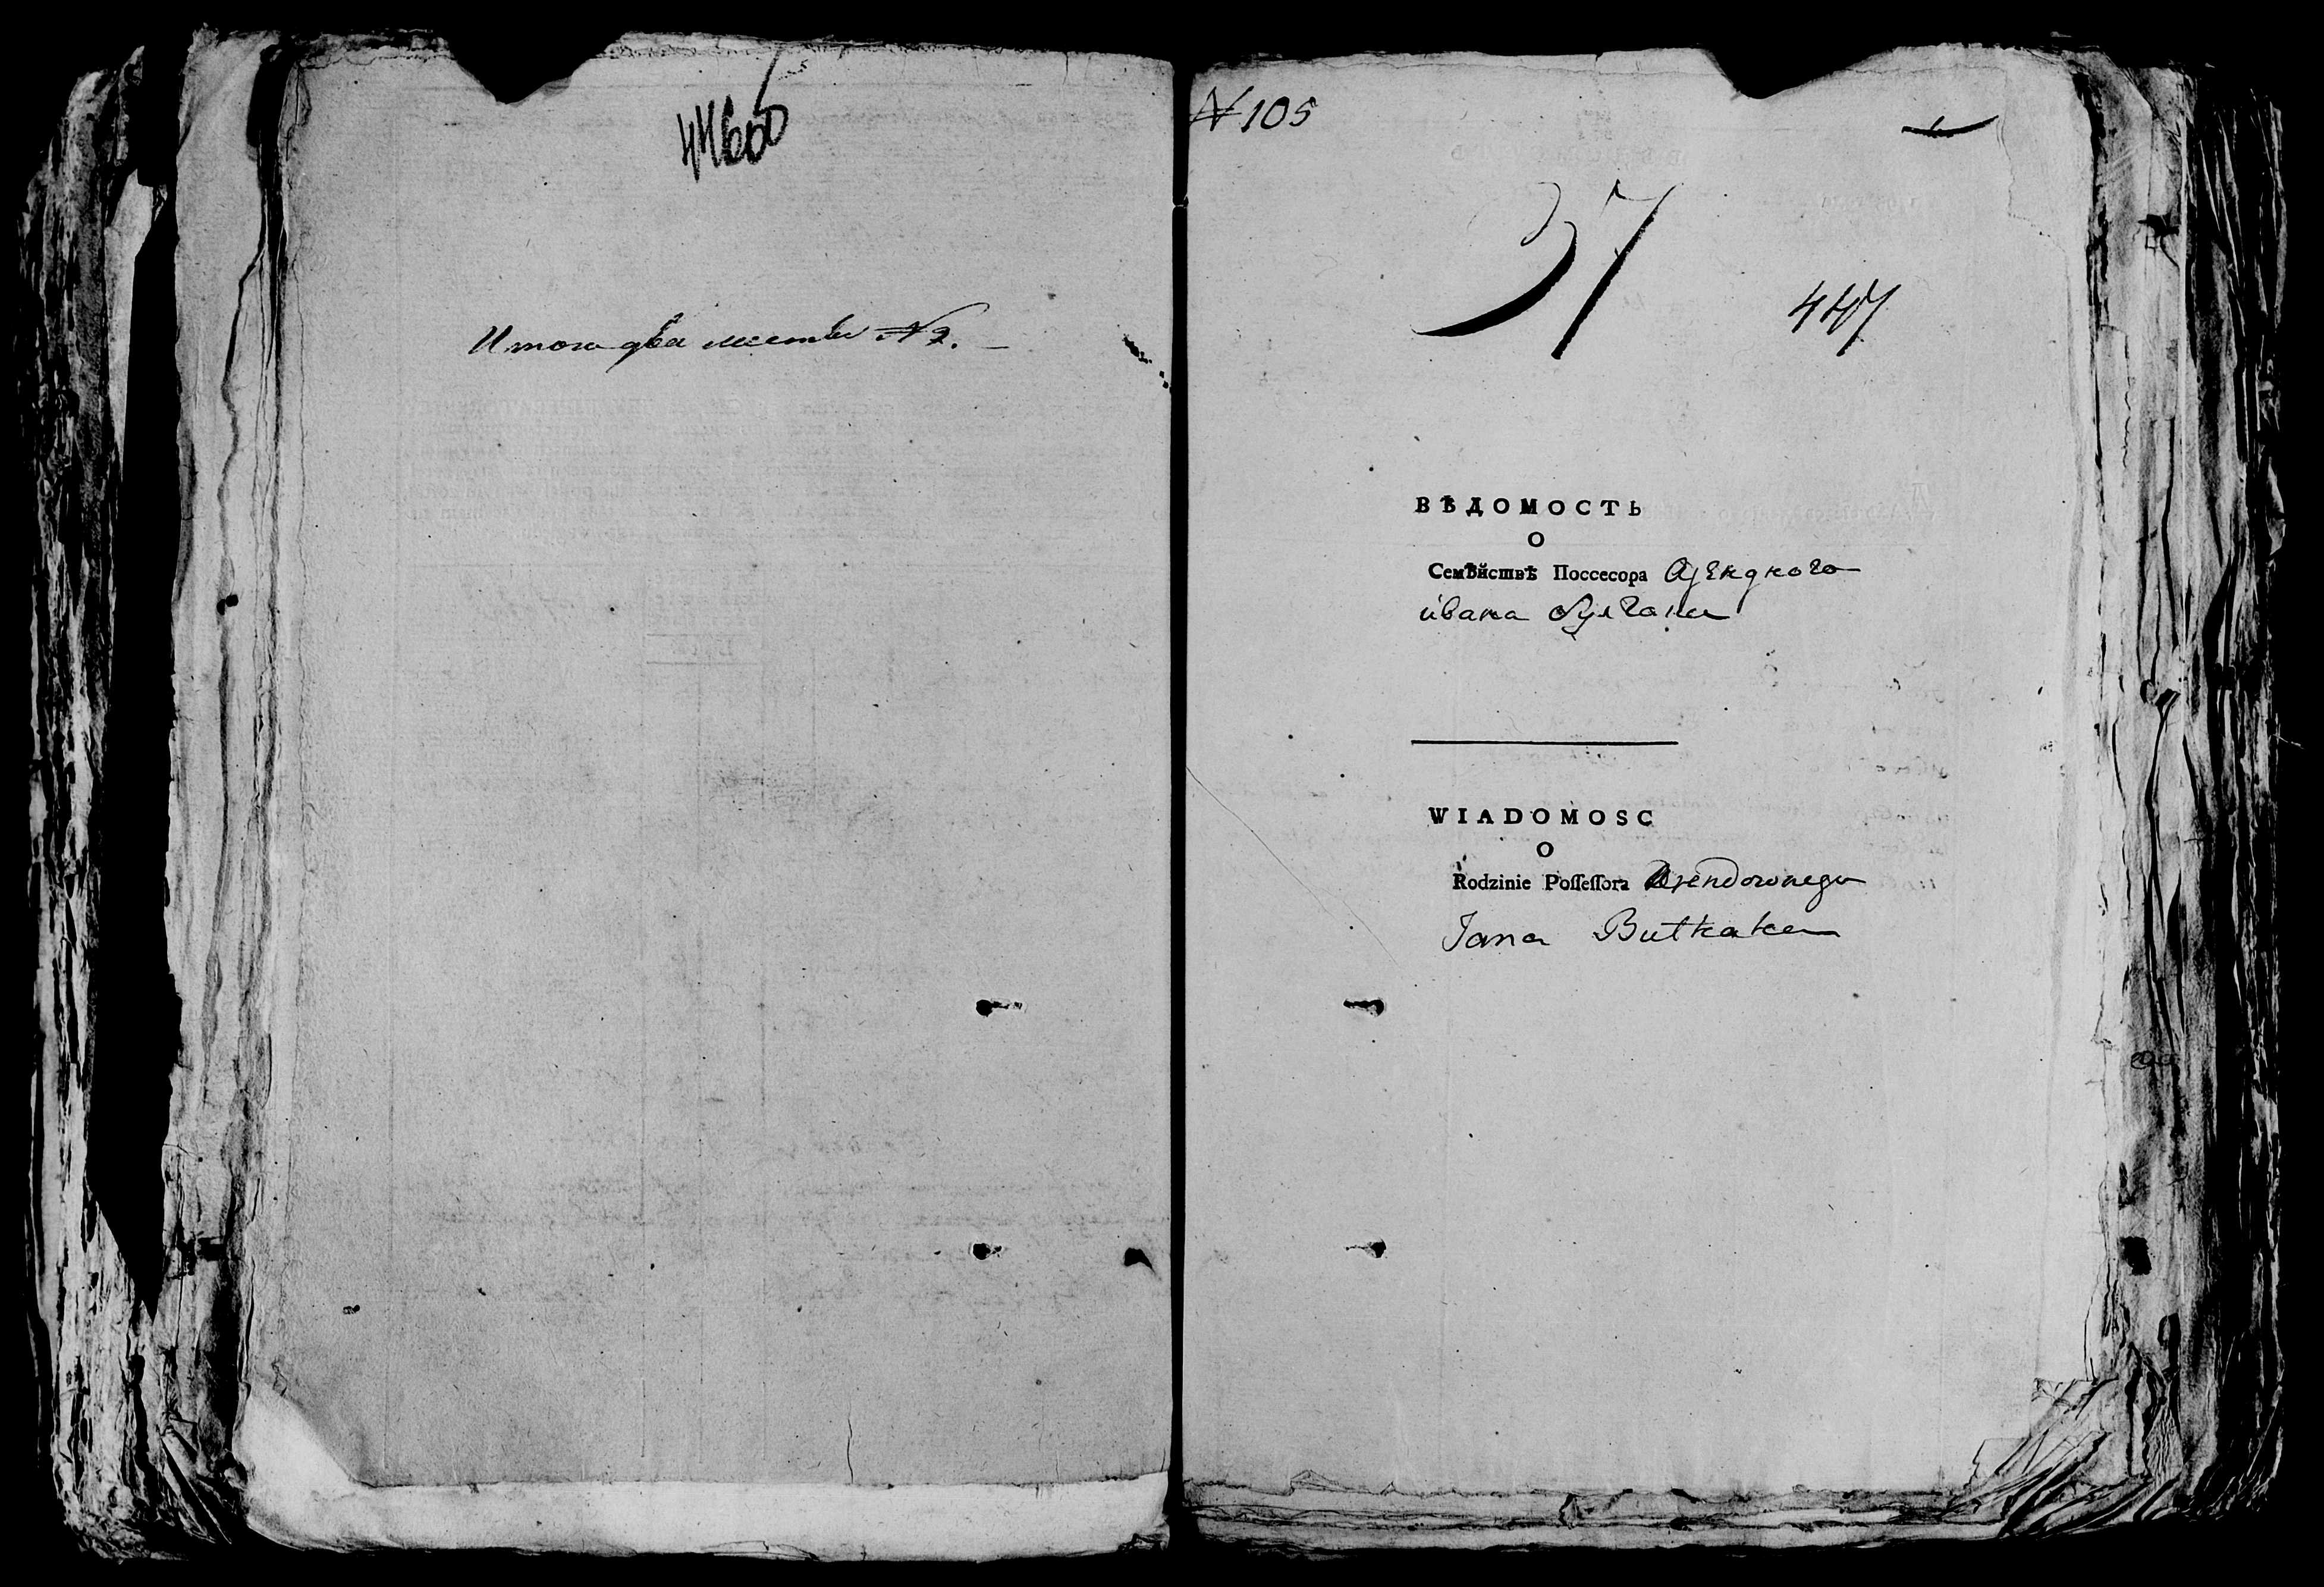 Итого два листы № 2. —
№ 105
37
447
ВѢДОМОСТЬ
О
Семѣйствѣ Поссесора Арендного
ивана
WIADOMOSC
O
Rodzinie Poſſeſſora Arendownego
Jana Butkaka